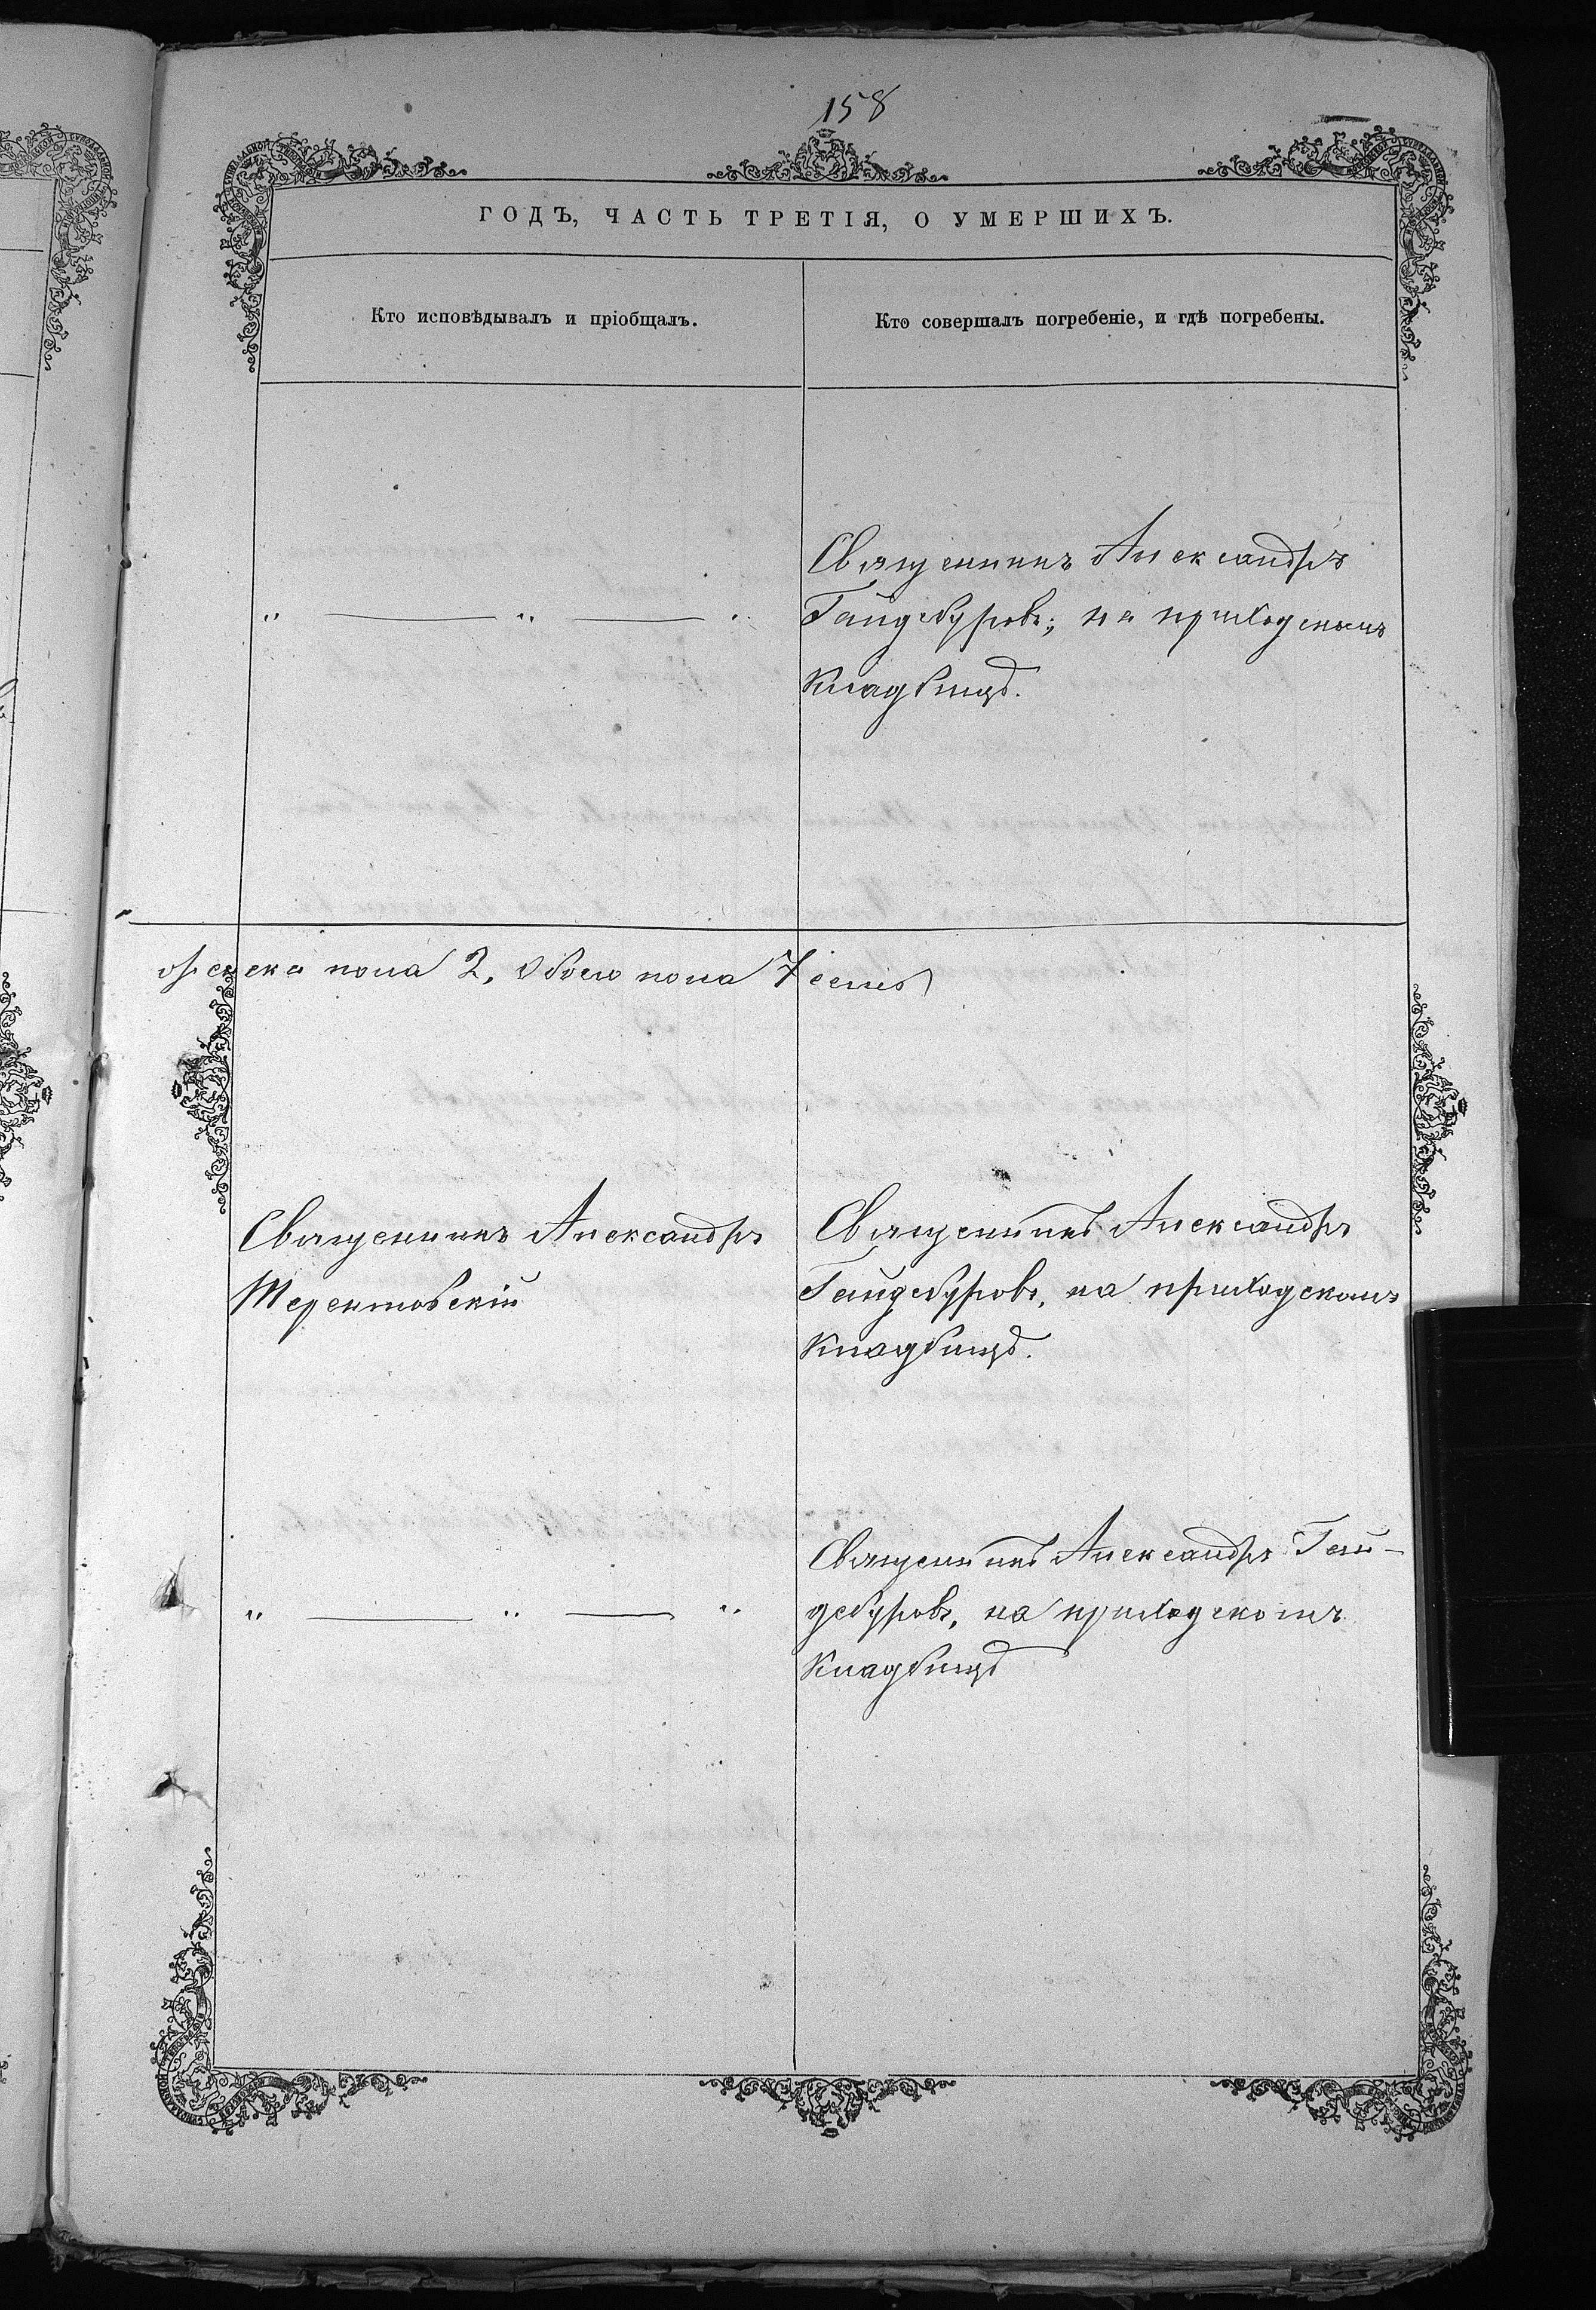 158
ГОДЪ, ЧАСТЬ ТРЕТІЯ, О УМЕРШИХЪ.
Кто исповѣдывалъ и пріобщалъ.
Кто совершалъ погребеніе, и гдѣ погребены.
Священникъ Александръ
" — " — " Гайдебуровъ; на приходскомъ
кладбищѣ.
женска пола 2, обоего пола 7 семь
Священникъ Александръ
Терентовскій
Священникъ Александръ
Гайдебуровъ, на приходскомъ
кладбищѣ.
Священникъ Александръ Гай-
" — " — " дебуровъ, на приходскомъ
кладбищѣ